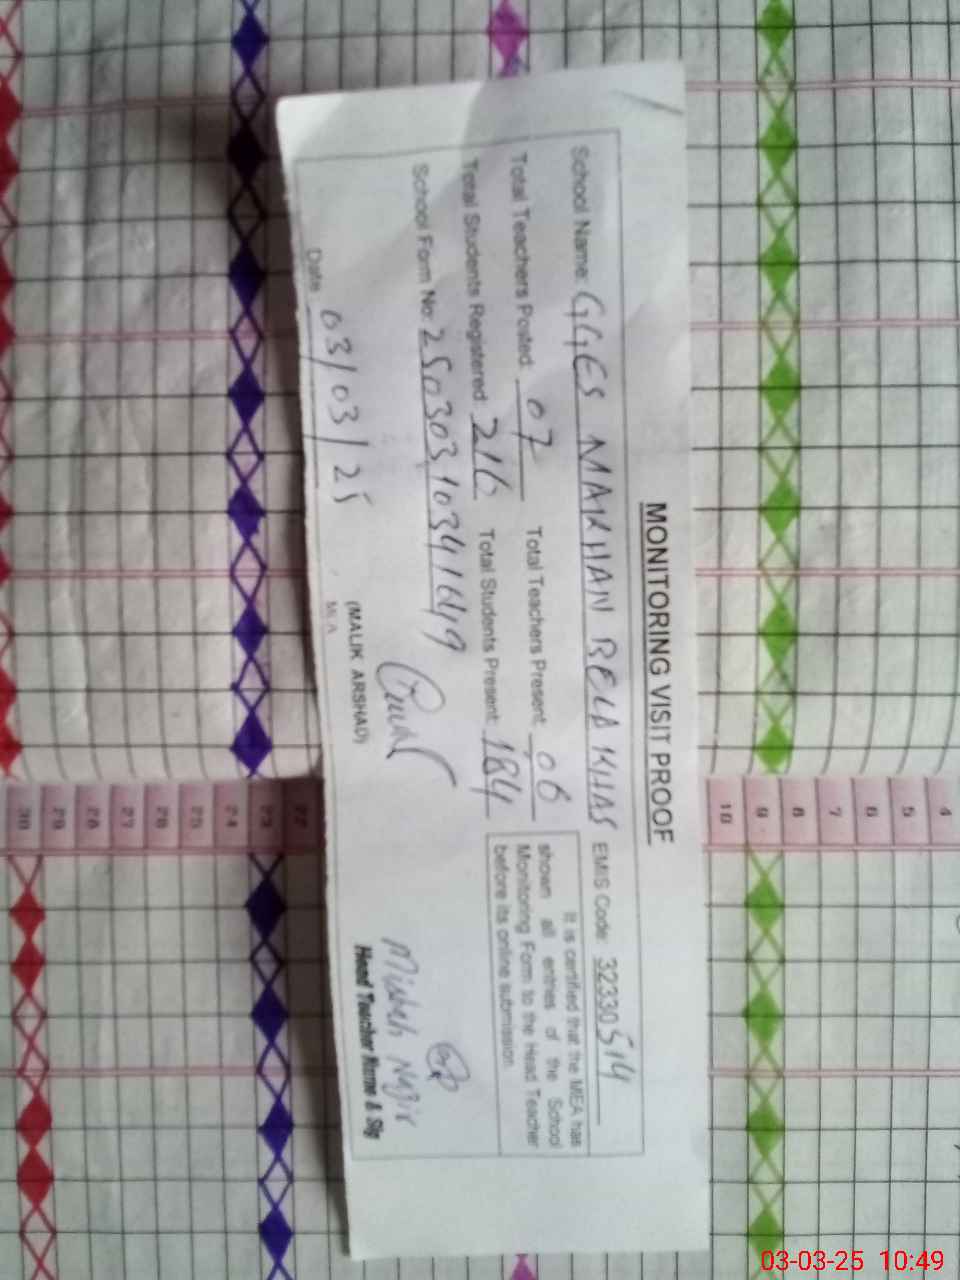 MONITORING VISIT PROOF
School Name: GGES MAKHAN BELA KHAS EMIS Code: 32330514
Total Teachers Posted: 07 Total Teachers Present: 06
Total Students Registered: 216 Total Students Present: 184
It is certified that the MEA has
shown all entries of the School
Monitoring Form to the Head Teacher
before its online submission.
School Form No:
Date 03/03/25
(MALIK ARSHAD)
MEA
Misbah Nazir
Head Teacher Name & Sig
30 29 28 27 26 25 24 23 22
10 9 8 7 6 5 4
03-03-25 10:49